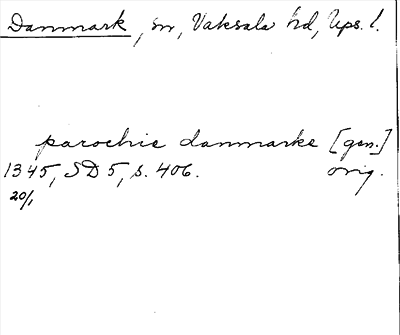 Danmark, sn, Vaksala hd, Ups. l.
parochie danmarke [gen.]
1345, SD 5, s. 406. orig.
20/1